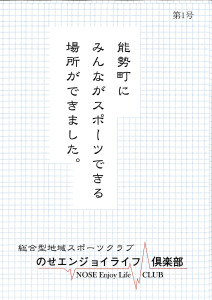 第1号
能勢町に
みんながスポーツできる
場所ができました。
総合型地域スポーツクラブ
のせエンジョイライフ倶楽部
NOSE Enjoy Life CLUB